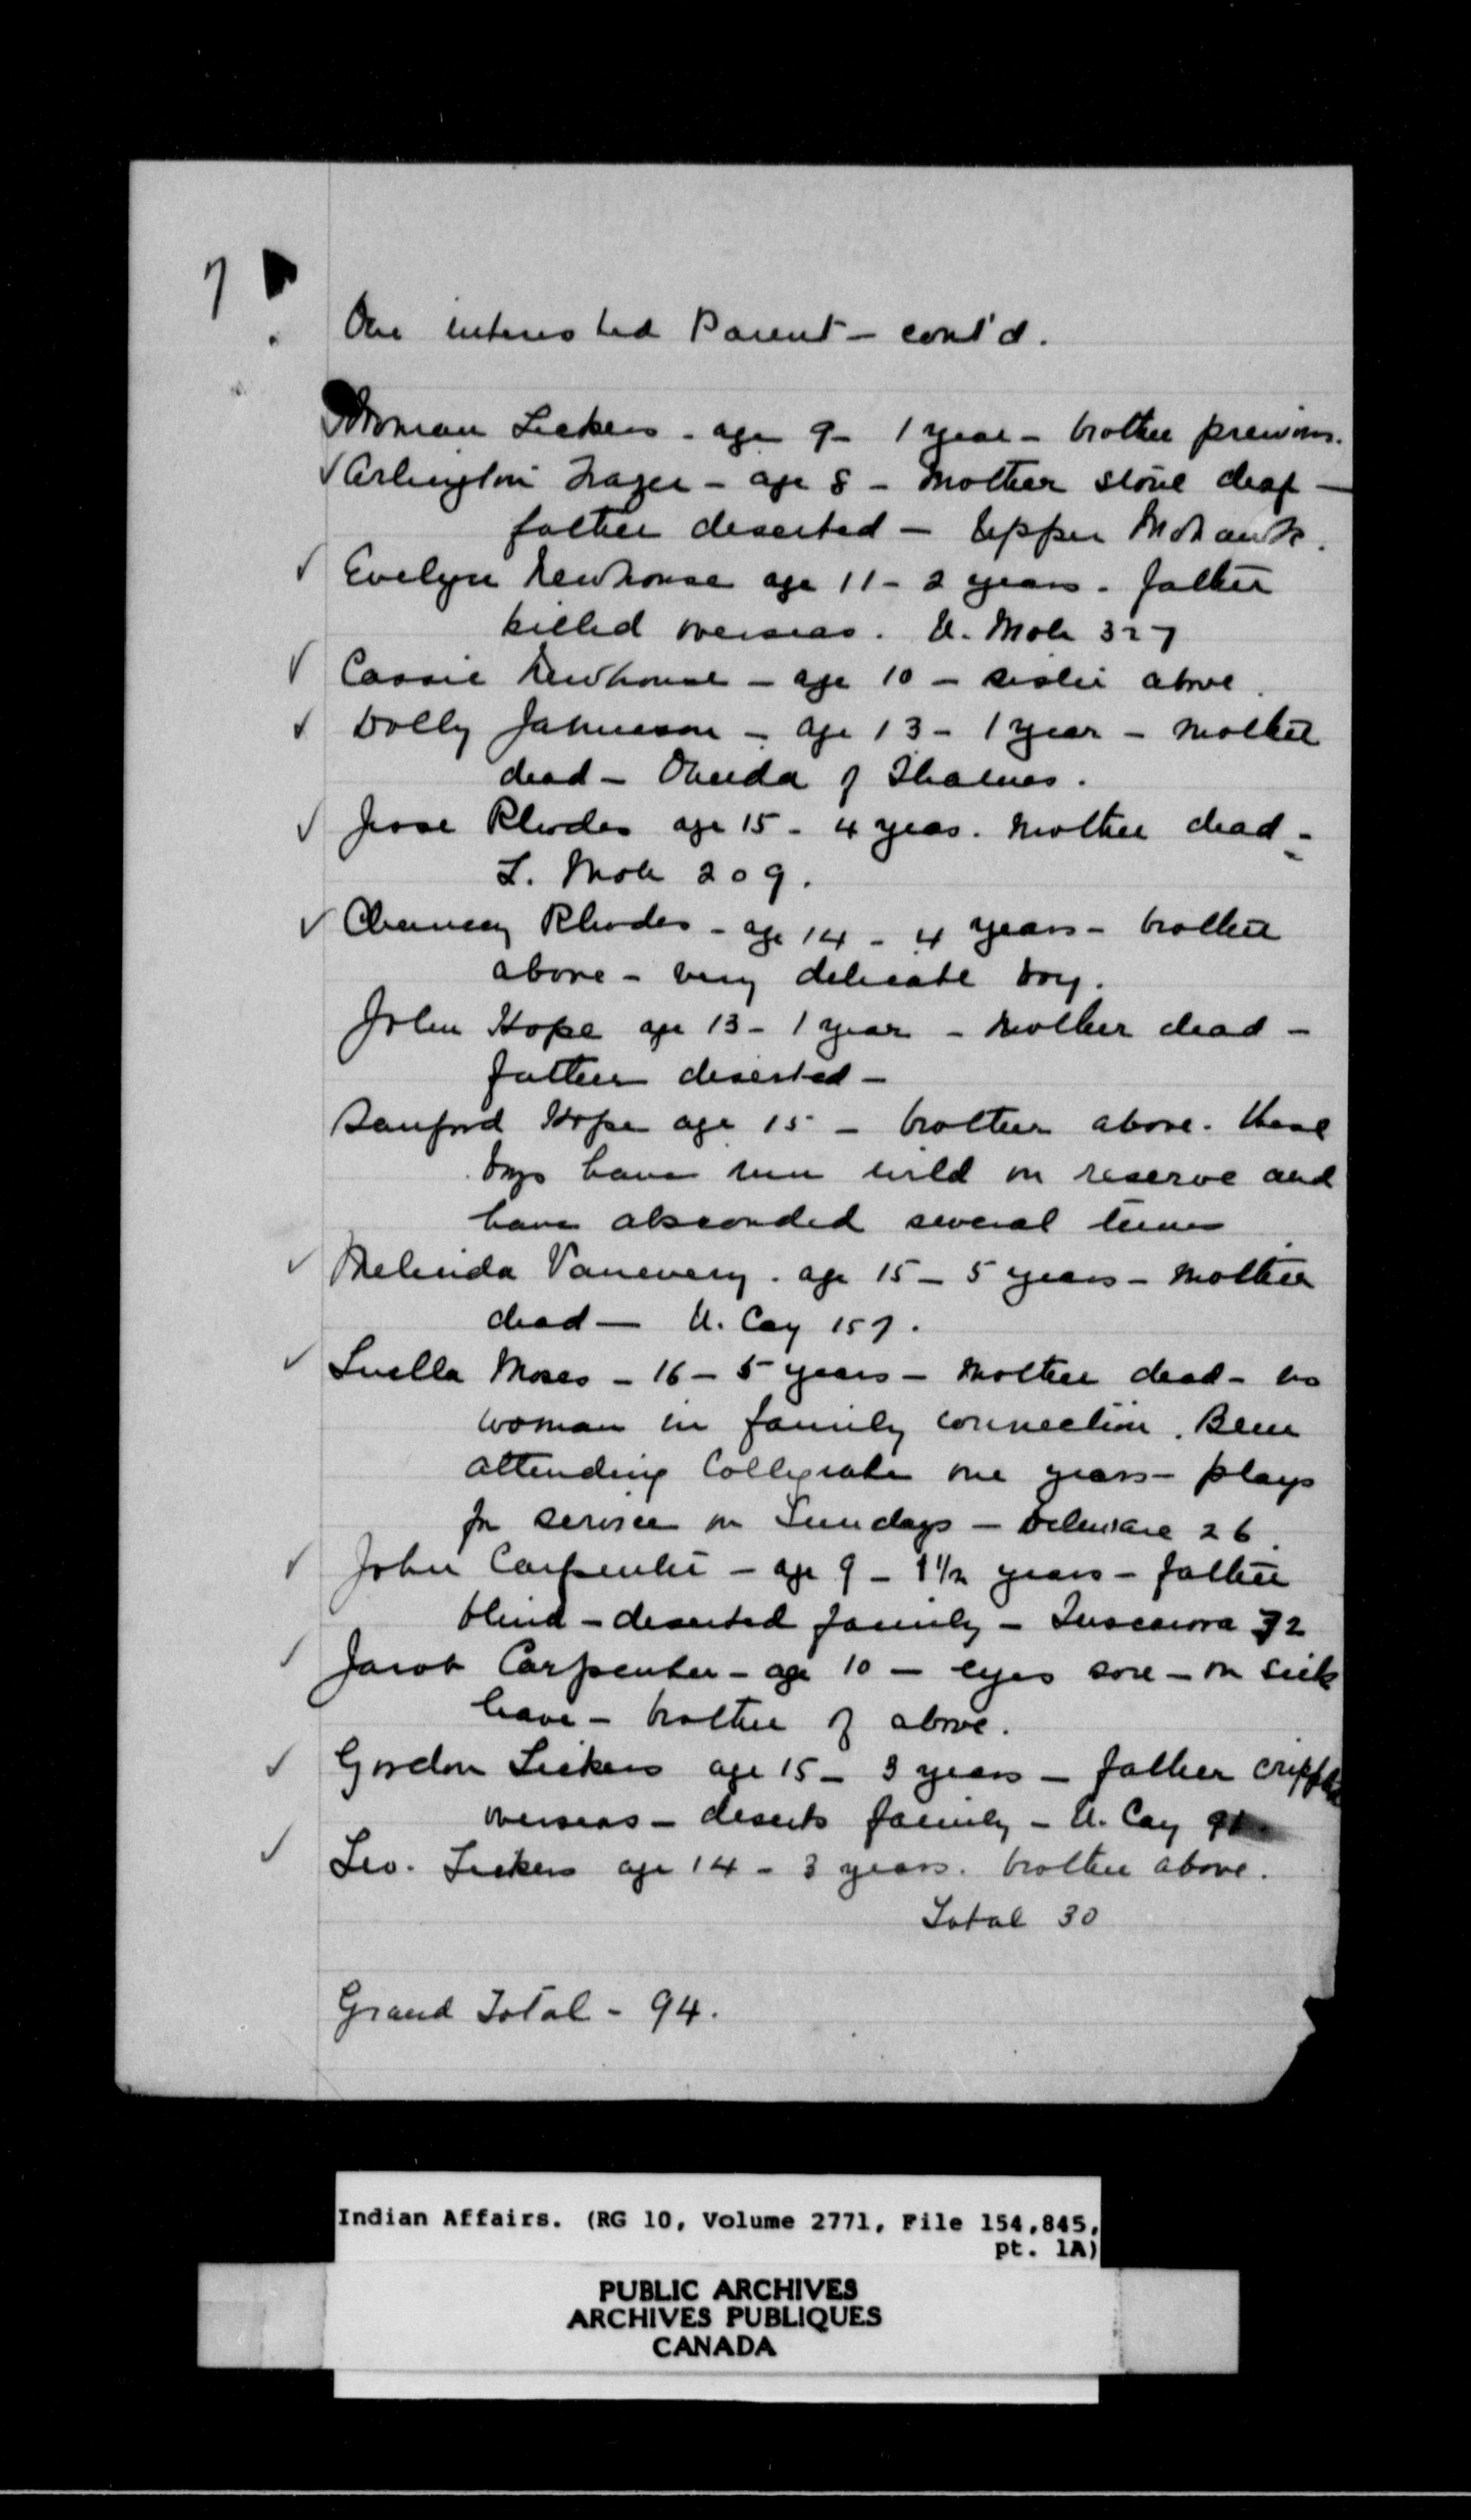 7
One interested Parent - cont'd.
✓ Norman Lickers - age 9 - 1 year - brother previous.
✓ Arlington - age 8 - Mother stone deaf -
father deserted - Upper Mohawk.
✓ Evelyn Newhouse age 11 - 2 years - father
killed overseas. U. Moh 327
✓ Cassie Newhouse - age 10 - sister above.
✓ Dolly Jamieson - age 13 - 1 year - Mother
dead - Oneida of Thames.
✓ Jesse Rhodes age 15 - 4 years. Mother dead -
L. Moh 209.
✓ Chauncey Rhodes - age 14 - 4 years - brother
above - very delicate boy.
John Hope age 13 - 1 year - Mother dead -
father deserted -
Sanford Hope age 15 - brother above. these
boys have run wild on reserve and
have absconded several times
✓ Melinda Vanevery. age 15 - 5 years - Mother
dead - U. Cay 157.
✓ Luella Moses - 16 - 5 years - Mother dead - no
woman in family connection. Been
attending Collegiate one years - plays
for service on Sundays - Delaware 26.
✓ John Carpenter - age 9 - 1 1/2 years - father
blind - deserted family - Tuscarora 72
✓ Jacob Carpenter - age 10 - eyes sore - on sick
leave - brother of above.
✓ Gordon Lickers age 15 - 3 years - father crippled
overseas - deserts family - U. Cay
✓ Leo. Lickers age 14 - 3 years. brother above.
Total 30
Grand Total - 94.
Indian Affairs. (RG 10, Volume 2771, File 154,845,
pt. 1A)
PUBLIC ARCHIVES
ARCHIVES PUBLIQUES
CANADA